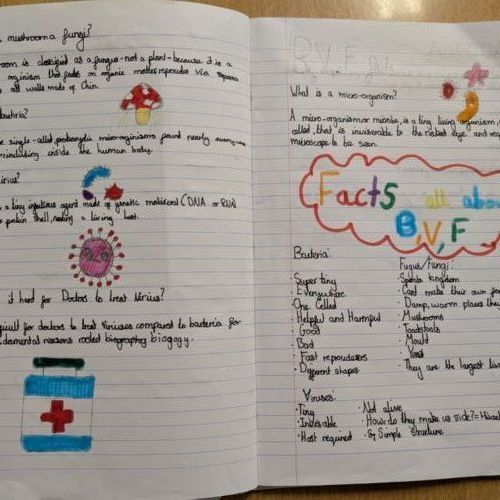 mushroom a fungi?
room is classified as a fungus-not a plant-because it is a
organism that feeds on organic matter, reproduces via
cell walls made of
bacteria?
single-celled, prokaryotic micro-organisims found nearly everywhere
including inside the human body.
virus?
a tiny infectious agent made of genetic material (DNA or RNA)
protein shell, needing a living host.
it hard for Doctors to treat virius?
difficult for doctors to treat viruses compared to bacteria for
reasons rooted biography biology.
B,V,F
What is a micro-organism?
A micro-organism or microbe, is a tiny living organism,
called that is to the naked eye and
microscope to be seen.
Facts all about
B,V,F
Bacteria:
· Super tiny
· Everywhere
· One Celled
· Helpful and Harmful
· Good
· Bad
· Fast reproducers
· Different shapes
Fugus/Fungi:
kingdom
Cant make their own
· Damp, worm places
· Mushrooms
· Toadstools
· Mould
· Yeast
· They are the largest
Viruses:
· Tiny
· Host required
· Not alive
· How do they make us sick?=
· Simple structure